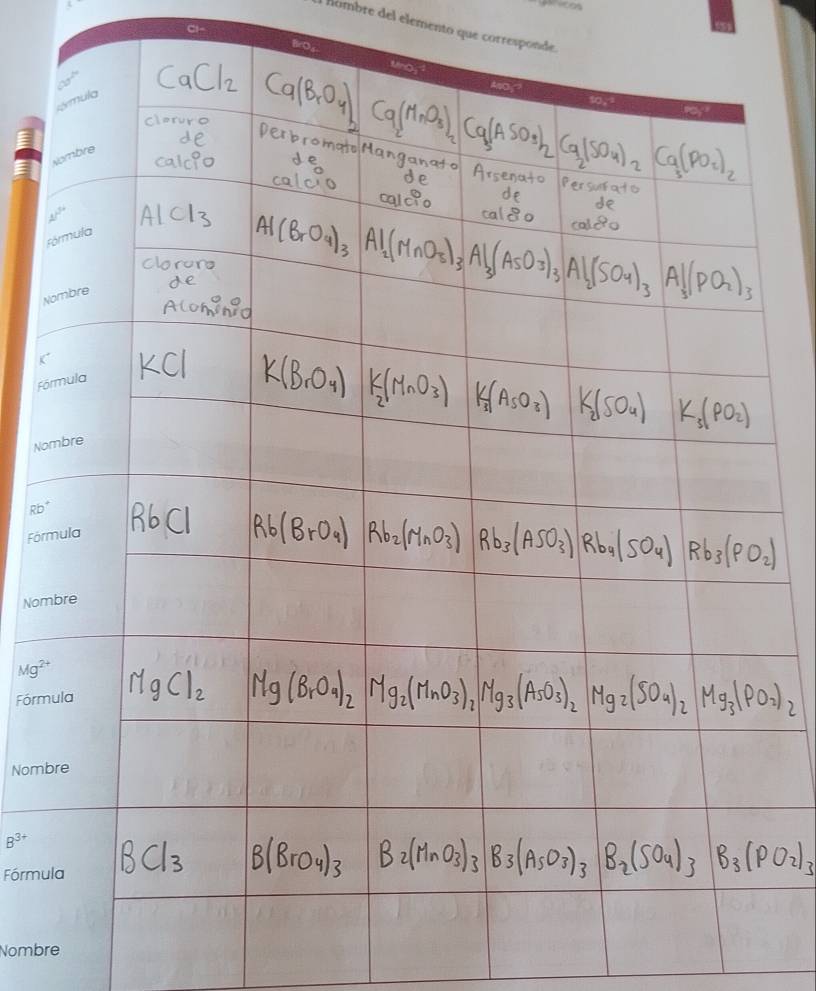 nombre del elemento que corresponde.
Cl-
BrO₄
MnO₃⁻²
AsO₃⁻³
SO₄⁻²
PO₂⁻³
Ca²⁺
Fórmula
CaCl2 Ca(BrO4)2 Ca2(MnO3)2 Ca3(ASO3)2 Ca2(SO4)2 Ca3(PO2)2
Nombre
cloruro de calcio
Perbromato de calcio
Manganato de calcio
Arsenato de calcio
Persulfato de calcio
Al³⁺
Fórmula
AlCl3 Al(BrO4)3 Al2(MnO3)3 Al3(AsO3)3 Al2(SO4)3 Al3(PO2)3
Nombre
cloruro de Alominio
K⁺
Fórmula
KCl K(BrO4) K2(MnO3) K3(AsO3) K2(SO4) K3(PO2)
Nombre
Rb⁺
Fórmula
RbCl Rb(BrO4) Rb2(MnO3) Rb3(ASO3) Rb4(SO4) Rb3(PO2)
Nombre
Mg²⁺
Fórmula
MgCl2 Mg(BrO4)2 Mg2(MnO3)2 Mg3(AsO3)2 Mg2(SO4)2 Mg3(PO2)2
Nombre
B³⁺
Fórmula
BCl3 B(BrO4)3 B2(MnO3)3 B3(AsO3)3 B2(SO4)3 B3(PO2)3
Nombre